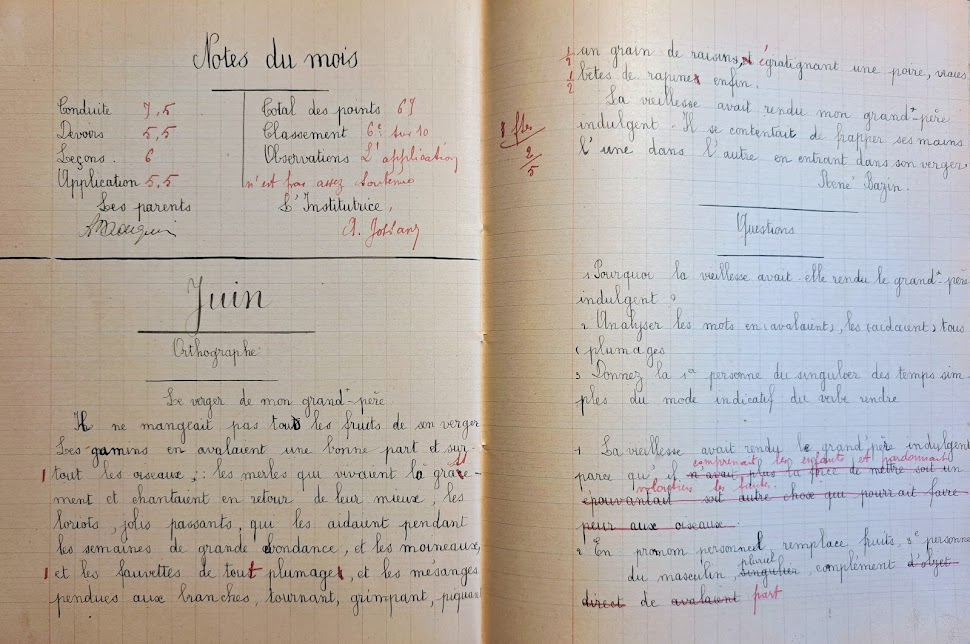 Notes du mois
Conduite 7,5
Devoirs 5,5
Leçons. 6
Application 5,5
Les parents
Total des points 67
Classement 6e sur 10
Observations L'application
n'est pas assez soutenue
L'Institutrice,
Juin
Orthographe
Le verger de mon grand-père
Il ne mangeait pas tout les fruits de son verger
Les gamins en avalaient une bonne part et sur
1 tout les oiseaux : les merles qui vivaient là grase-
ment et chantaient en retour de leur mieux, les
loriots, jolis passants, qui les aidaient pendant
les semaines de grande abondance, et les moineaux,
1 et les fauvettes de tout plumages, et les mésanges
pendues aux branches, tournant, grimpant, piquant
1/2 un grain de raisins, et égratignant une poire, vraies
1/2 bêtes de rapines enfin.
La vieillesse avait rendu mon grand-père
indulgent. Il se contentait de frapper ses mains
l'une dans l'autre en entrant dans son verger
René Bazin.
3 ftes
2/5
Questions
1 Pourquoi la vieillesse avait-elle rendu le grand-père
indulgent ?
2 Analyser les mots en (avalaient), les (aidaient) tous
(plumages
3 Donnez la 1re personne du singulier des temps sim-
ples du mode indicatif du verbe rendre
1 La vieillesse avait rendu le grand'père indulgent
comprenait les enfants et pardonnait
parce qu'il n'avait plus la force de mettre soit un
volontiers
épouvantail soit autre chose qui pourrait faire
peur aux oiseaux.
2 En pronom personnel remplace fruits, 3e personne
pluriel
du masculin singulier, complément d'objet
direct de avalaient part